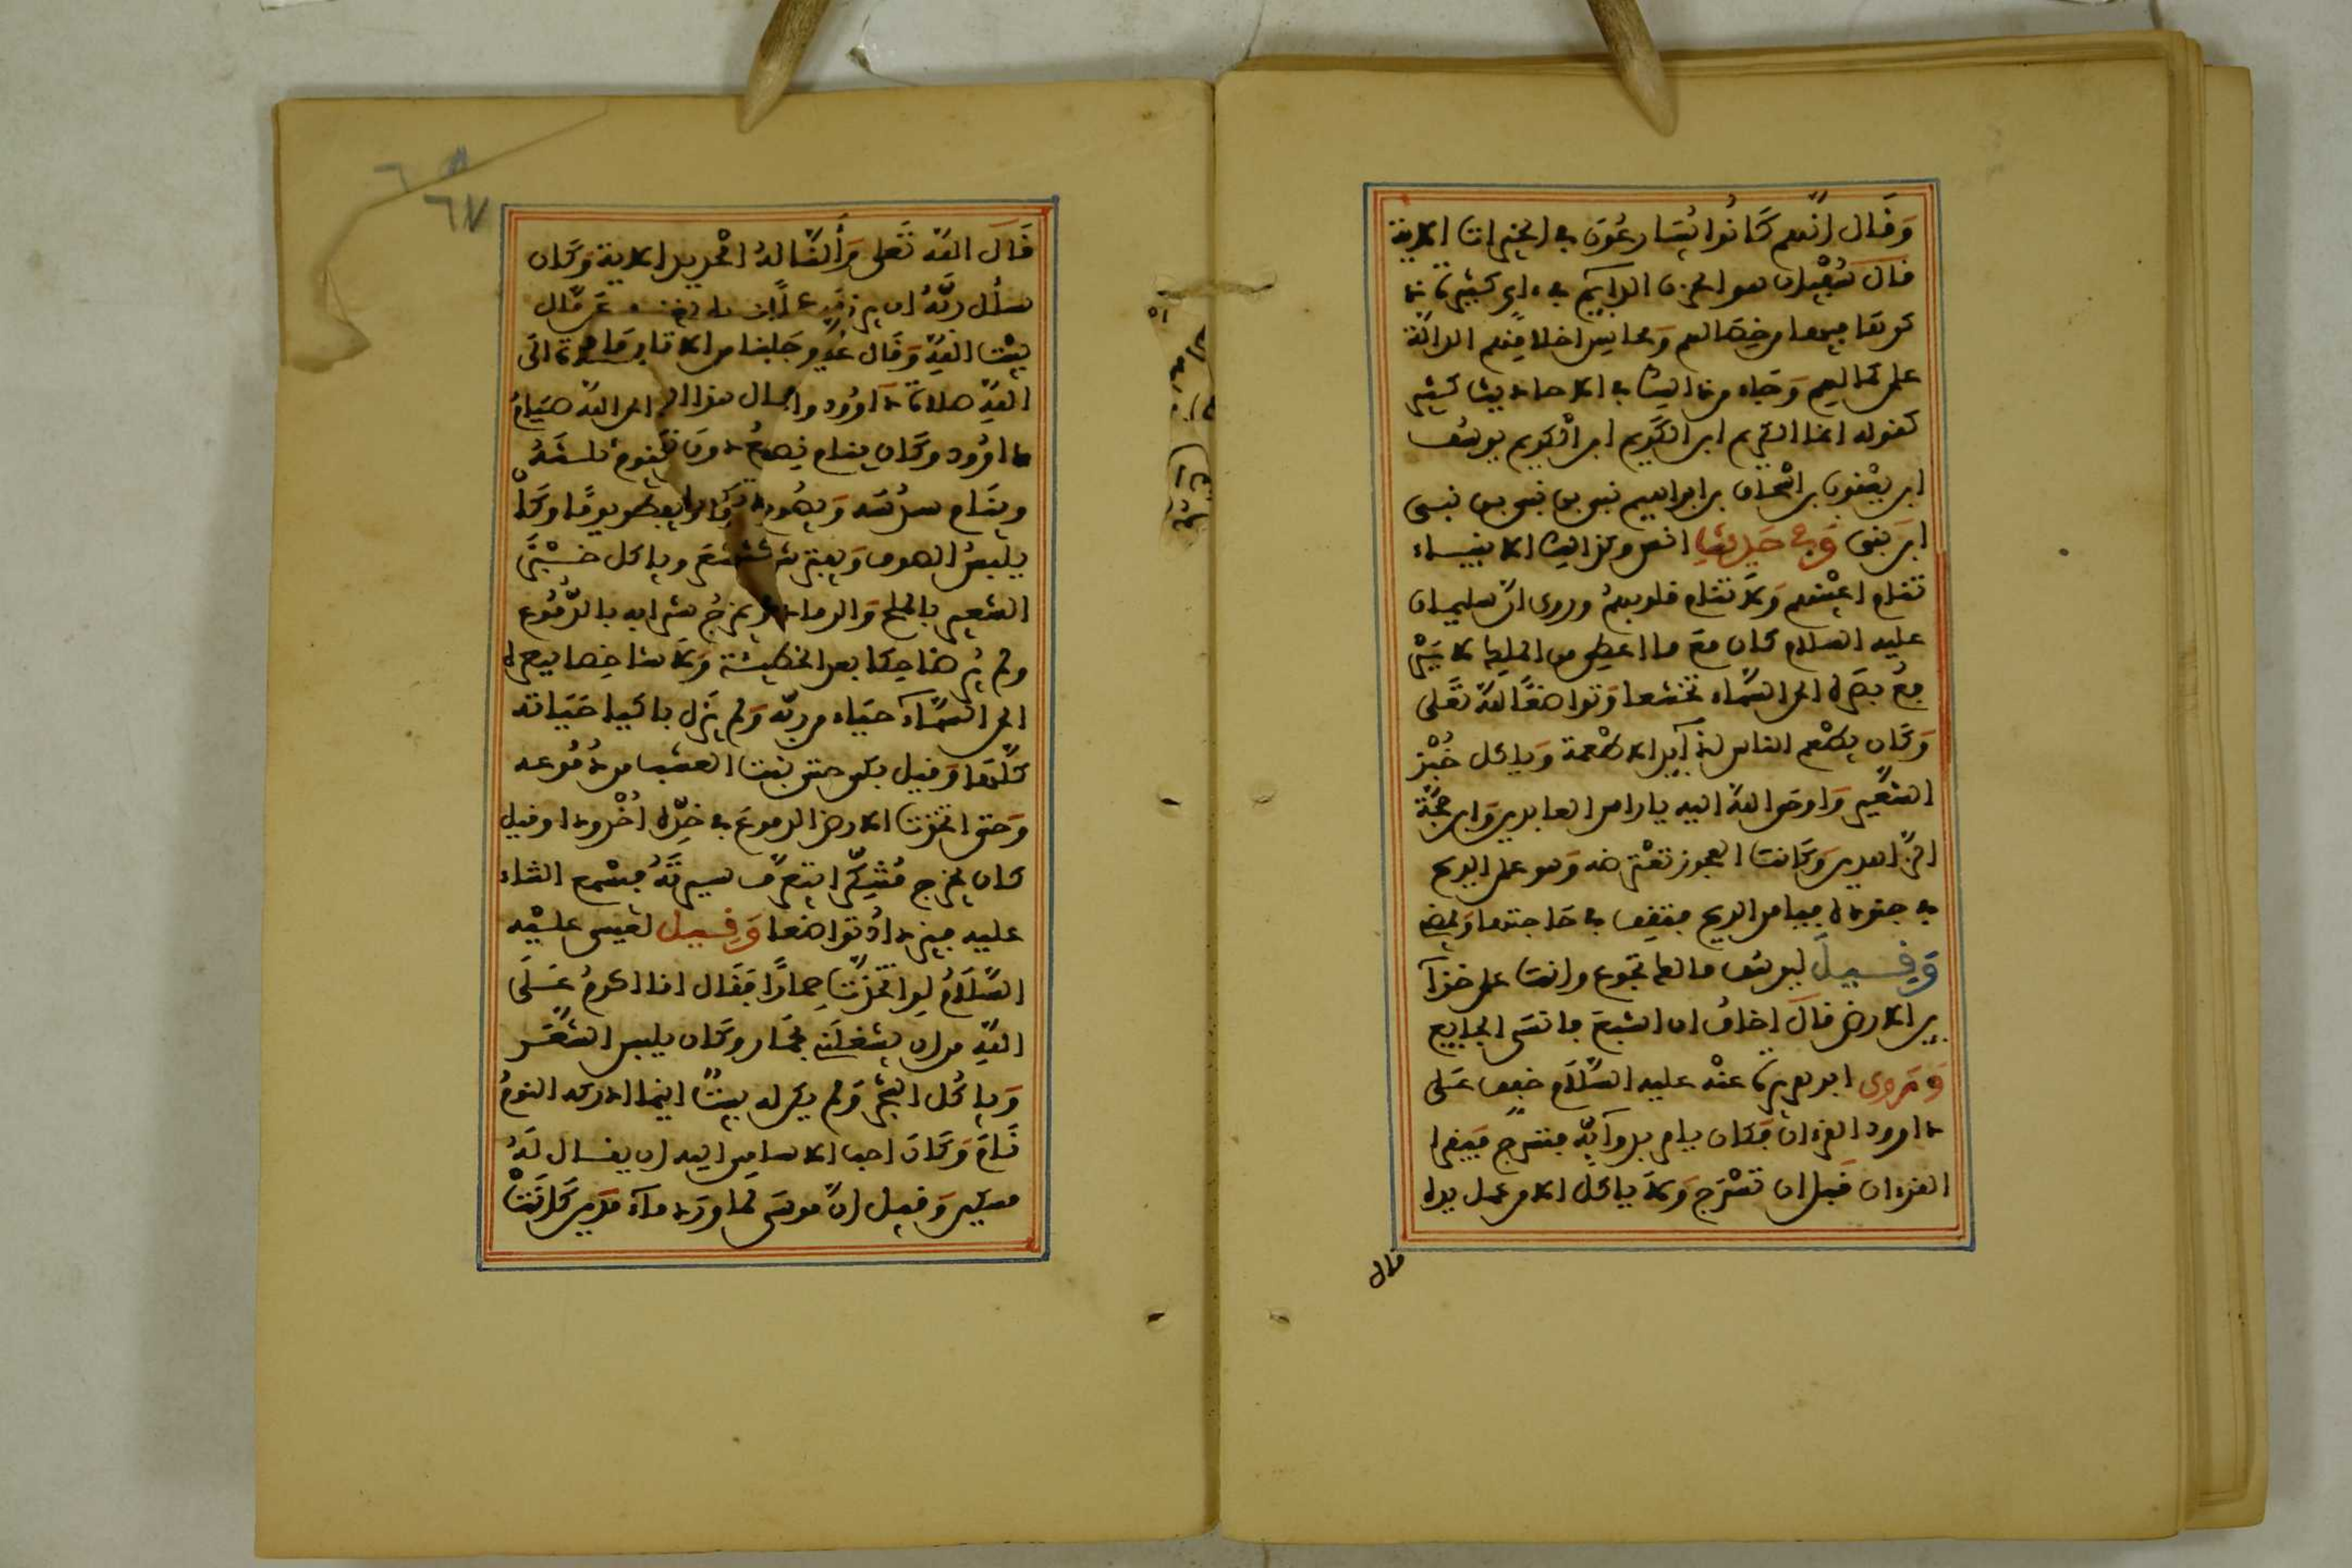 وَقَال اِنّهم كَانُوا يُسَارعُونَ في الخيرات الاية
قال سُفْيان هو الحزن الدايم في ءاي كثيرة
ذكر فيها من خصالهم ومحاسن اخلاقهم الدالة
على كمالهم وَجاء من ذالك في الاحاديث كثير
كقوله انما الكريم ابن الكَريم ابن الكريم يوسُف
ابن يعْقوب بن اسْحاق بن ابراهيم نبي بن نبي بن نبي
ابن نبي وَفي حَديثِ انس وكذالك الانبياء
تنام اعْينهم وَلا تنام قلوبهمْ وروى ان سليمان
عليه السلام كان مع ما اعطي من الملك لا يَرْ
فعُ بصَره الى السَّماء تخشعا وَتواضعًا لله تعَلى
وَكَان يطْعم الناس لذآيذ الاطْعمة وَياكل خُبْز
الشعَير وَاوحَى الله اليه يا راس العابدين وَابن محجَّة
الزَّاهدين وَكَانت العجوز تعْترضه وَهو على الريح
في جنوده فيامر الريح فتقف في حَاجتها وَيمضي
وَقِيلَ ليوسُف مالك تجوع وانت على خزآ
ين الارض قال اخافُ ان اشبعَ فانسَى الجايع
وَرَوى ابو هريرة عنْه عليه السَّلام خفف عَلى
داوود القرءان فكان يامر بدوآبّه فتسرج فيَقرا
القرءان قبل ان تسْرَج وَلا ياكل الا من عمل يده
قال
قَالَ اللهُ تَعلى وَأَلَنَّا لهُ الْحديد الاية وَكَان
سأل ربَّهُ ان يرزقه عملا بيده يغنيه عَن مال
بيْت اللهِ وَقَال عليه
اللهِ صلاة داوُود واحب الى الله صيَامُ
داوُود وكَان ينام نِصفُ ويَقُوم ثلثَهُ
وينَام سدُسَه وَيصُوم يوما ويفطر يومًا وكَانَ
يلبسُ الصوف وَيفترش الشعَر وياكل خبْز
الشعير بالملح وَالرماد ويمزجُ شرابه بالدُّمُوع
ولم يُر ضاحكا بعد الخطيئة وَلا شاخصا ببصره
الى السَّمآء حيَاء من ربّه وَلم يَزل باكيا حيَاته
كلَّهَا وَقيل بكى حتى نبت العشب من دُمُوعه
وَحتى اتخذت الارض الدموعَ في خدّه اُخْدودا وقيل
كان يخرج مُتنكّرا يتعرَّف سيرتَهُ فيسْمع الثناء
عليه فيزدادُ تواضعا وَقِيل لعيسى عليْه
السَّلَامُ لو اتخذْت حمارًا فقَال انا اكرمُ عَلَى
اللهِ من ان يشغلَني بحمَار وكَان يلبس الشعَر
وَياكُل الشجَر وَلم يكن له بيتٌ اينما ادركه النومُ
نَامَ وَكَانَ احب الاسامي اليه ان يقال لَهُ
مسكين وَقيل انَّ موسى لما ورَد مآء مَدين كَانَتْ